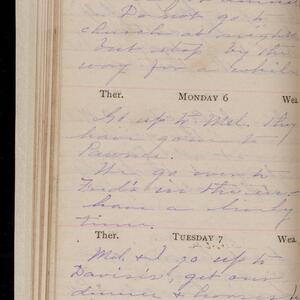 Do not go to
church at night
but stop by the
way for a while
Ther. MONDAY 6 Wea
Go up to Mel. they
have gone to
Pawnee.
We go over to
Fred's in the eve
have a lively
time.
Ther. TUESDAY 7 Wea
Mel & I go up to
Davis's, get our
dinner &